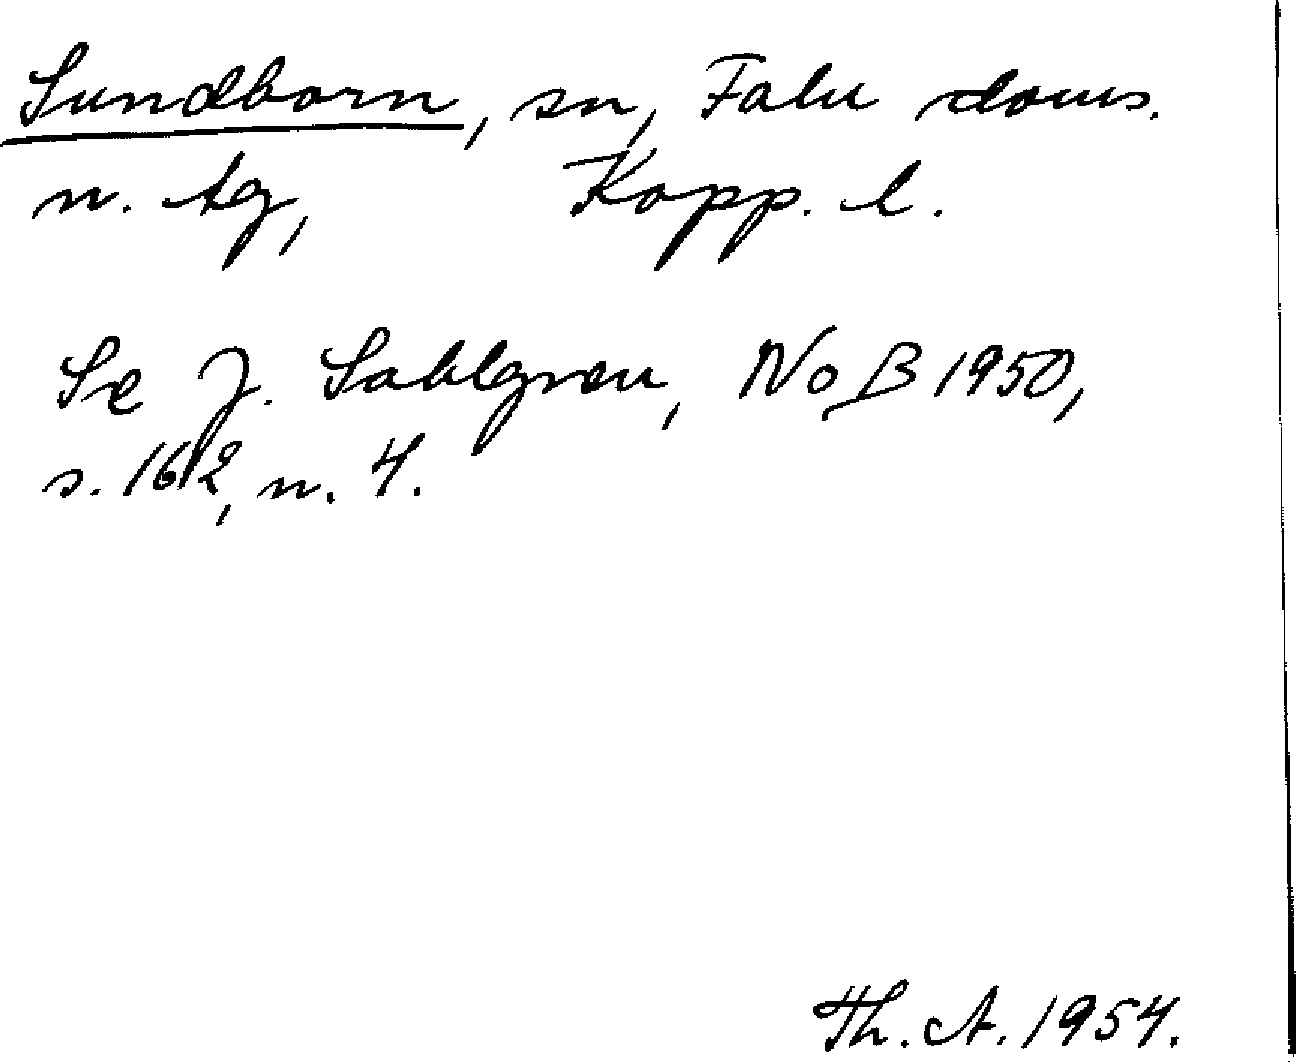 Sundborn, sn, Falu doms.
n. tg, Kopp. l.
Se J. Sahlgren, NoB 1950,
s. 162, n. 4.
Th. A. 1954.